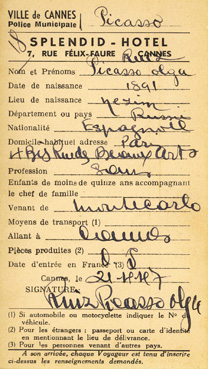 VILLE de CANNES
Police Municipale
Picasso
8
SPLENDID - HOTEL
7, RUE FÉLIX-FAURE CANNES
Ruiz
Nom et Prénoms Picasso olga
Date de naissance 1891
Lieu de naissance
Département ou pays Russie
Nationalité Espagnole
Domicile habituel adresse Paris
4 Bis Rue des Beaux Arts
Profession Sans
Enfants de moins de quinze ans accompagnant
le chef de famille
Venant de Montecarlo
Moyens de transport (1)
Allant à Cannes
Pièces produites (2)
Date d'entrée en France (3)
Cannes, 21.4.47
SIGNATURE,
Ruiz Picasso Olga
(1) Si automobile ou motocyclette indiquer le N° du
véhicule.
(2) Pour les étrangers : passeport ou carte d'identité
en mentionnant le lieu de délivrance.
(3) Pour les personnes venant d'autres pays.
A son arrivée, chaque Voyageur est tenu d'inscrire
ci-dessus les renseignements demandés.